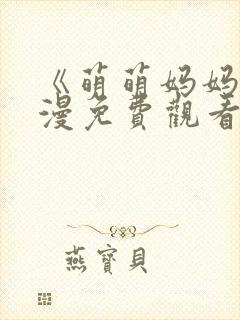 《萌萌妈妈
漫免費觀看
燕寶貝